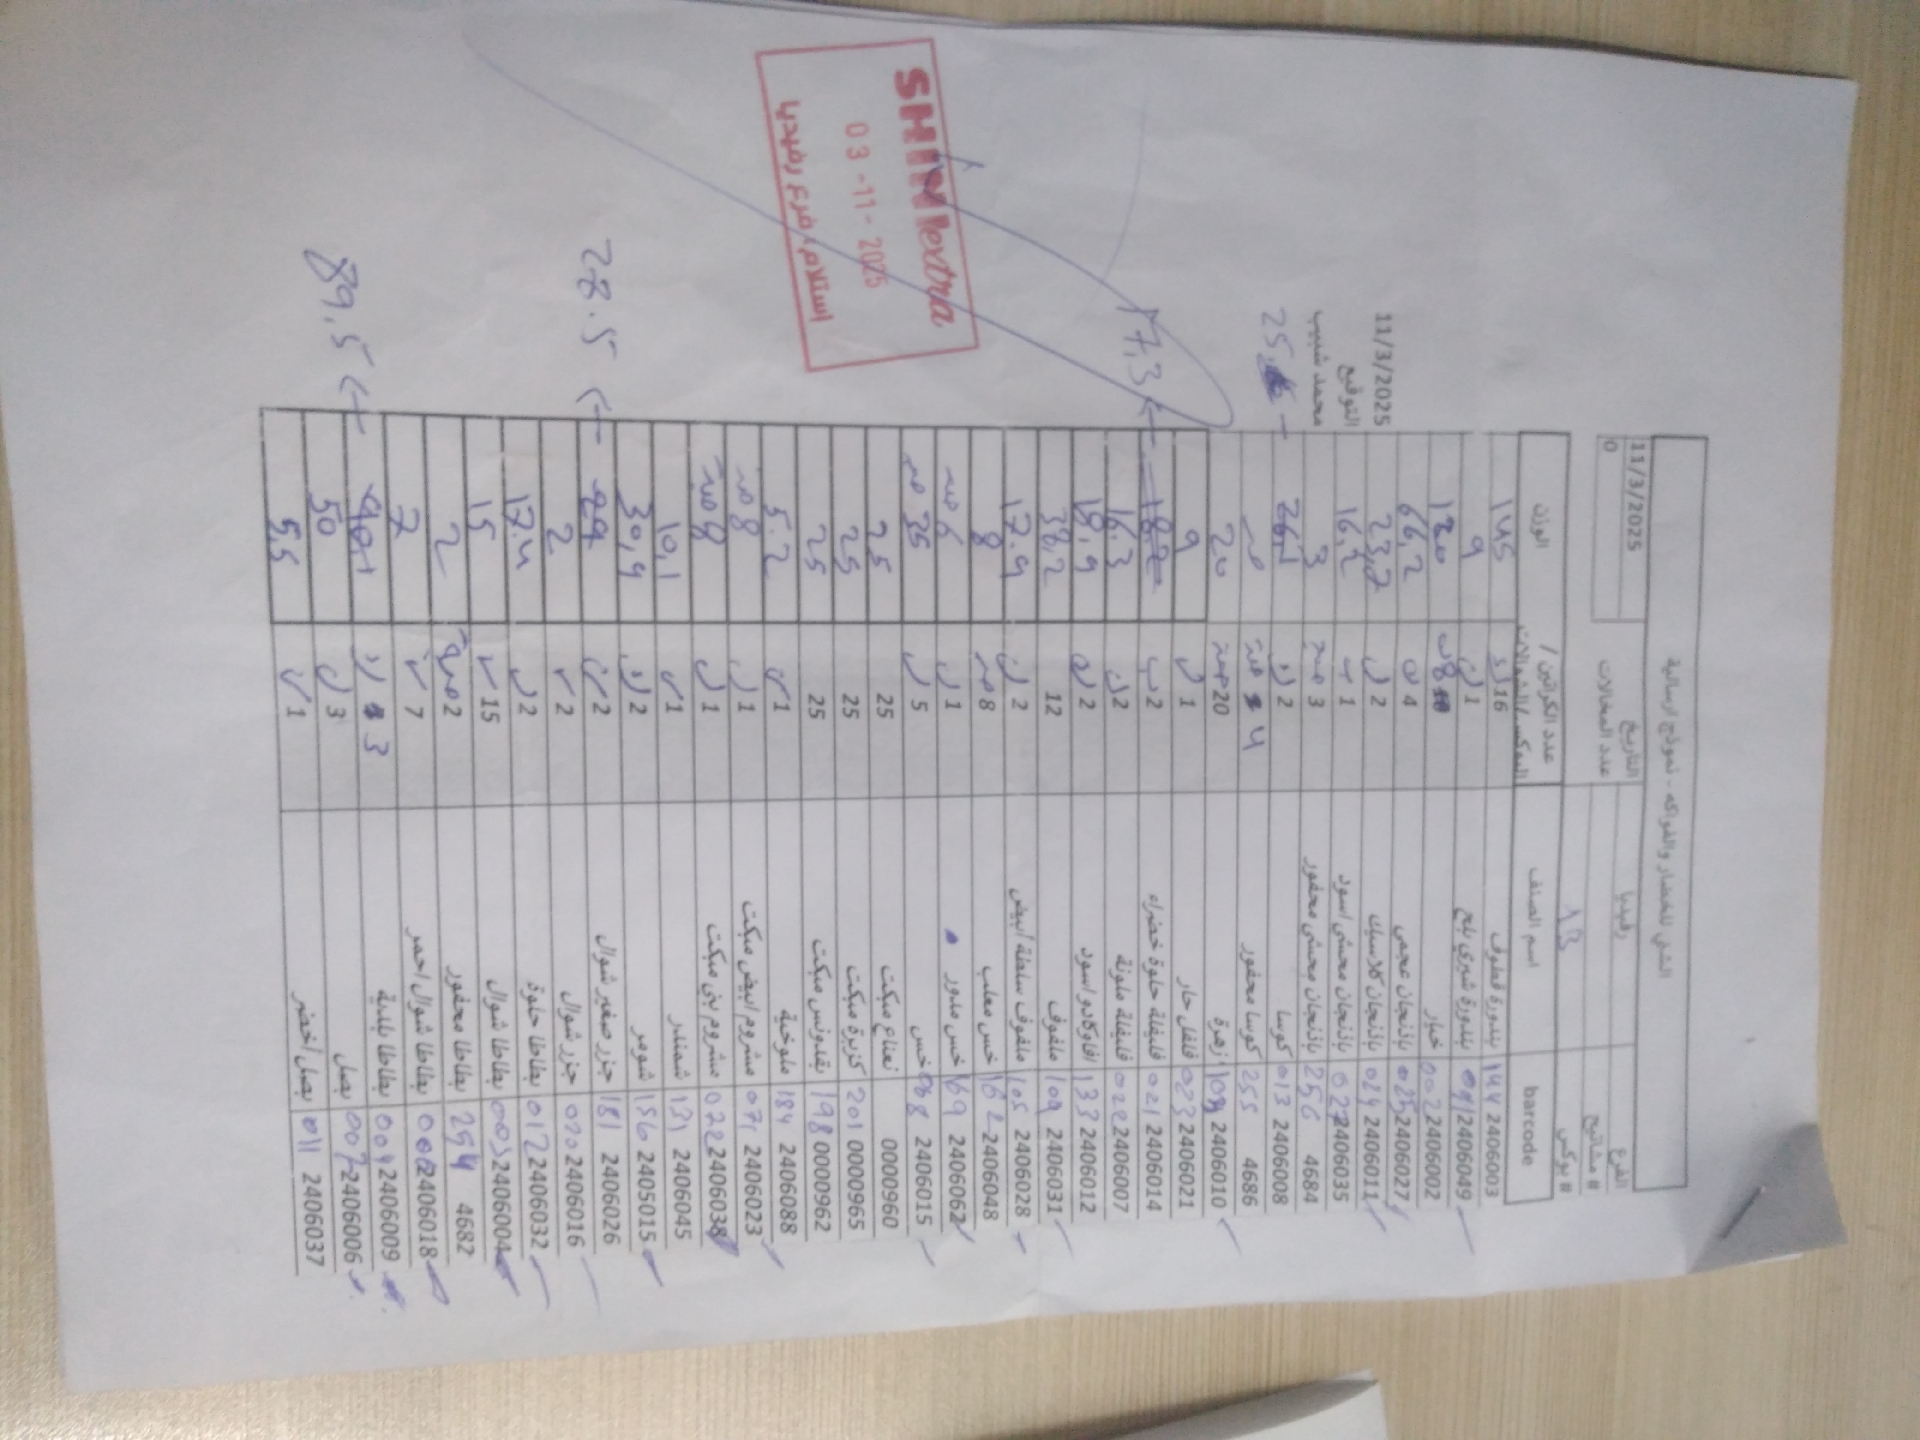 الشني للخضار والفواكه - نموذج ارسالية
الفرع رفيديا التاريخ 11/3/2025
# مشاتيح عدد المخالات 0
# بوكس 83
barcode اسم الصنف عدد الكراتين / البوكس/الشوالات الوزن
2406003 144 بندورة قطوف 16 145
2406049 041 بندورة شيري بلح 1 9
2406002 002 خيار 8 120
2406027 025 باذنجان عجمي 4 66,2
2406011 024 باذنجان كلاسيك 2 23,7
2406035 027 باذنجان محشي اسود 1 16,2
4684 256 باذنجان محشي محفور 3 3
2406008 013 كوسا 2 26,1
4686 255 كوسا محفور 4
2406010 109 زهرة 20 20
2406021 023 فلفل حار 1 9
2406014 021 فليفلة حلوة خضراء 2
2406007 022 فليفلة ملونة 2 16.3
2406012 133 افاوكادو اسود 2 18,9
2406031 104 ملفوف 12 38,2
2406028 105 ملفوف سلطة ابيض 2 17.9
2406048 162 خس معلب 8 8
2406062 169 خس مدور 1 6
2406015 068 خس 5 35
0000960 نعناع مبكت 25 25
0000965 201 كزبرة مبكت 25 25
0000962 198 بقدونس مبكت 25 25
2406088 184 ملوخية 1 5.2
2406023 071 مشروم ابيض مبكت 1 8
2406038 072 مشروم بني مبكت 1 8
2406045 131 شمندر 1 10,1
2405015 156 شومر 2 30,9
2406026 181 جزر صغير شوال 2
2406016 020 جزر شوال 2 2
2406032 012 بطاطا حلوة 2 17.4
2406004 003 بطاطا شوال 15 15
4682 254 بطاطا محفور 2 2
2406018 بطاطا شوال احمر 7 7
2406009 004 بطاطا بلدية 3
2406006 007 بصل 3 50
2406037 011 بصل اخضر 1 5,5
11/3/2025
التوقيع
محمد شبيب
25
17,3
28.5
89,5
SHINIextra
03-11-2025
استلام، فرع رفيديا